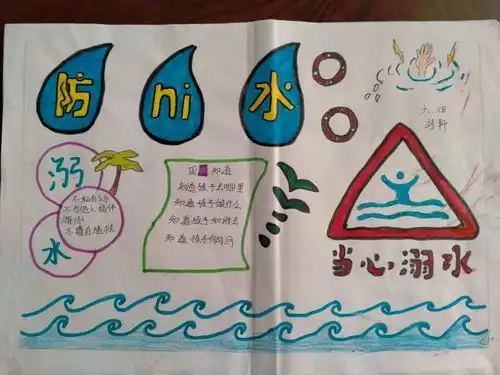 防ni水
六四
溺
水
不私自下水
不与他人结伴
游泳
不擅自地候
四知道
知道孩子去哪里
知道孩子做什么
知道孩子和谁去
知道孩子何时回
当心溺水